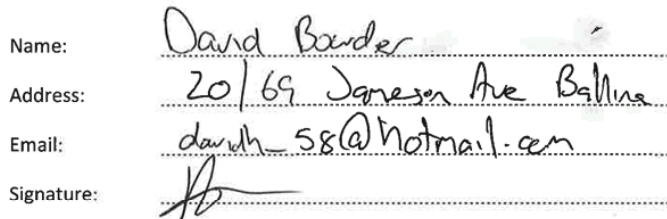 Name: David Bowder
Address: 20/69 Jameson Ave Ballina
Email: davidh_58@hotmail.com
Signature: